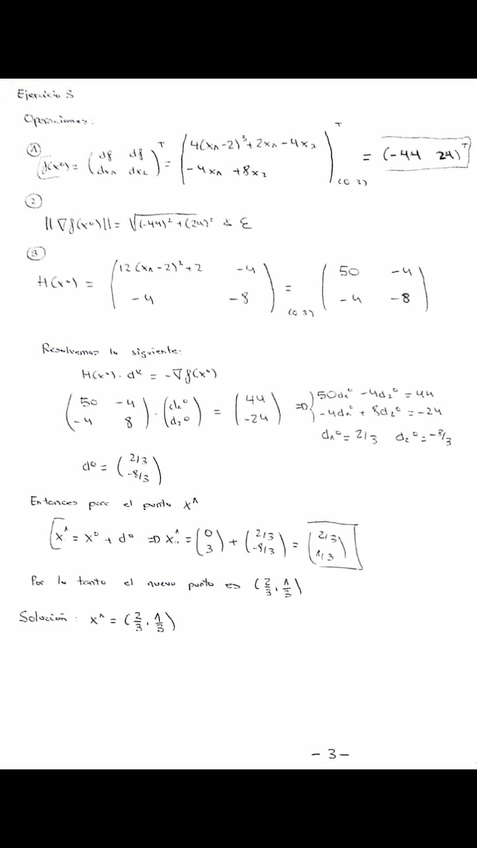 Ejercicio 3
Operaciones:
① f(x⁰) = (df/dx₁ df/dx₂)ᵀ = (4(x₁-2)³+2x₁-4x₂ -4x₁+8x₂)ᵀ(0 3) = (-44 24)ᵀ
②
||∇f(x⁰)|| = √(-44)²+(24)² ≰ ε
③
H(x⁰) = (12(x₁-2)²+2 -4 -4 -8)(0 3) = (50 -4 -4 -8)
Resolvemos lo siguiente:
H(x⁰)·dᵏ = -∇f(x⁰)
(50 -4 -4 8)·(d₁⁰ d₂⁰) = (44 -24) ⇒ { 50d₁⁰ -4d₂⁰ = 44
-4d₁⁰ + 8d₂⁰ = -24
d₁⁰ = 2/3 d₂⁰ = -8/3
d⁰ = (2/3 -8/3)
Entonces para el punto x¹
x¹ = x⁰ + d⁰ ⇒ x¹ = (0 3) + (2/3 -8/3) = (2/3 1/3)
Por lo tanto el nuevo punto es (2/3, 1/3)
Solución: x¹ = (2/3, 1/3)
-3-